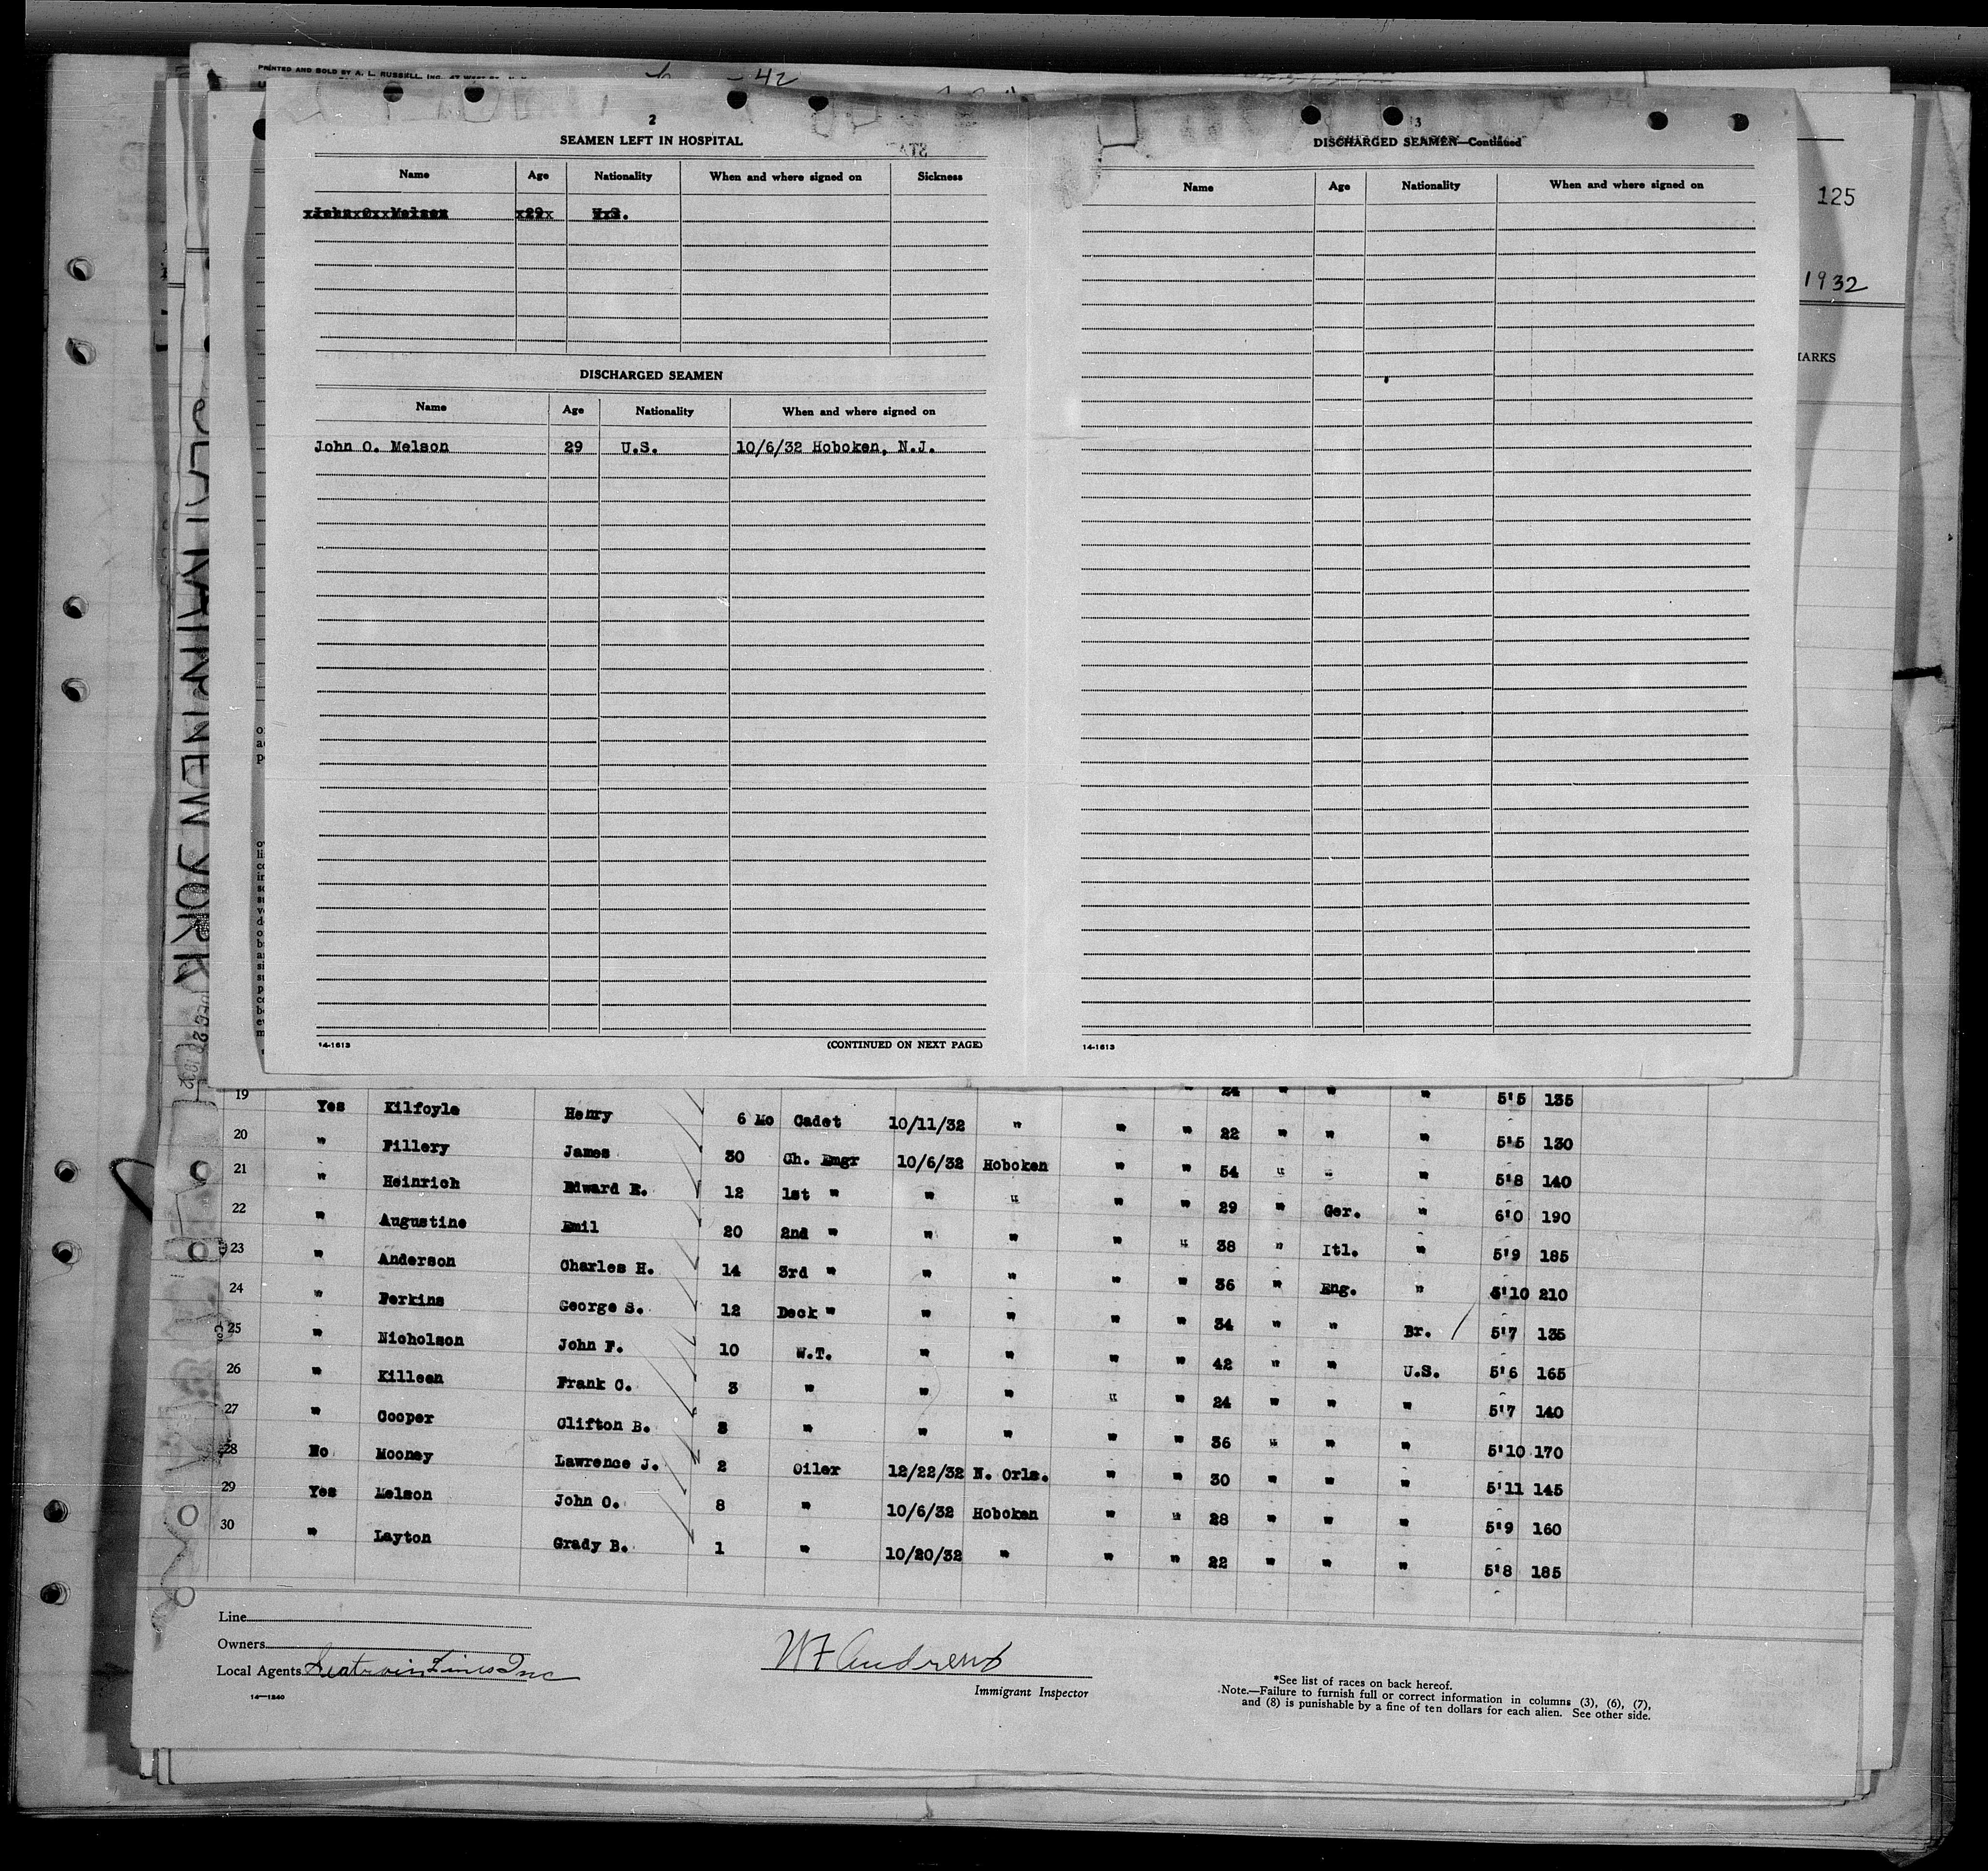 PRINTED AND SOLD BY A. L. RUSSELL, INC.
42
2
SEAMEN LEFT IN HOSPITAL
Name Age Nationality When and where signed on Sickness
John O. Melson 29 U.S.
DISCHARGED SEAMEN
Name Age Nationality When and where signed on
John O. Melson 29 U.S. 10/6/32 Hoboken, N.J.
14-1613 (CONTINUED ON NEXT PAGE)
3
DISCHARGED SEAMEN—Continued
Name Age Nationality When and where signed on
14-1613
125
1932
MARKS
NEW YORK
19 Yes Kilfoyle Henry 6 Mo Cadet 10/11/32 " " " 24 " " " 5'5 135
20 " Fillery James 30 Ch. Engr 10/6/32 Hoboken " " 22 " " " 5'5 130
21 " Heinrich Edward E. 12 1st " " " " " 54 " " " 5'8 140
22 " Augustine Emil 20 2nd " " " " " 29 " Ger. " 6'0 190
23 " Anderson Charles H. 14 3rd " " " " " 38 " Itl. " 5'9 185
24 " Perkins George S. 12 Deck " " " " " 36 " Eng. " 5'10 210
25 " Nicholson John F. 10 W.T. " " " " 34 " " Br. 5'7 135
26 " Killeen Frank C. 3 " " " " " 42 " " U.S. 5'6 165
27 " Cooper Clifton B. 3 " " " " " 24 " " " 5'7 140
28 No Mooney Lawrence J. 2 Oiler 12/22/32 N. Orls. " " 36 " " " 5'10 170
29 Yes Melson John O. 8 " 10/6/32 Hoboken " " 30 " " " 5'11 145
30 " Layton Grady B. 1 " 10/20/32 " " " 28 " " " 5'9 160
" " 22 " " " 5'8 185
Line
Owners
Local Agents Seatrain Lines Inc
14—1240
W F Andrews
Immigrant Inspector
*See list of races on back hereof.
Note.—Failure to furnish full or correct information in columns (3), (6), (7),
and (8) is punishable by a fine of ten dollars for each alien. See other side.